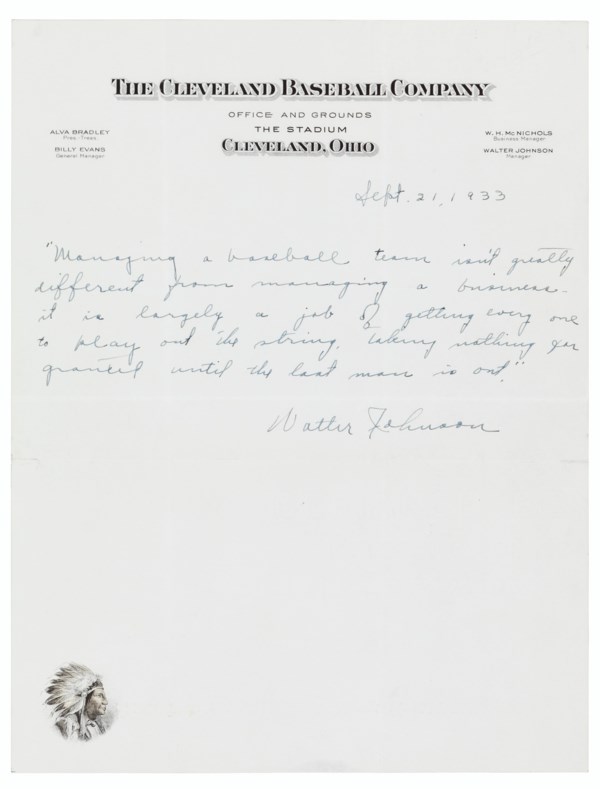 THE CLEVELAND BASEBALL COMPANY
OFFICE AND GROUNDS
THE STADIUM
CLEVELAND, OHIO
ALVA BRADLEY
Pres.-Treas.
BILLY EVANS
General Manager
W. H. McNICHOLS
Business Manager
WALTER JOHNSON
Manager
Sept. 21, 1933
"Managing a baseball team isn't greatly
different from managing a business -
it is largely a job of getting every one
to play out the string, taking nothing for
granted until the last man is out."
Walter Johnson